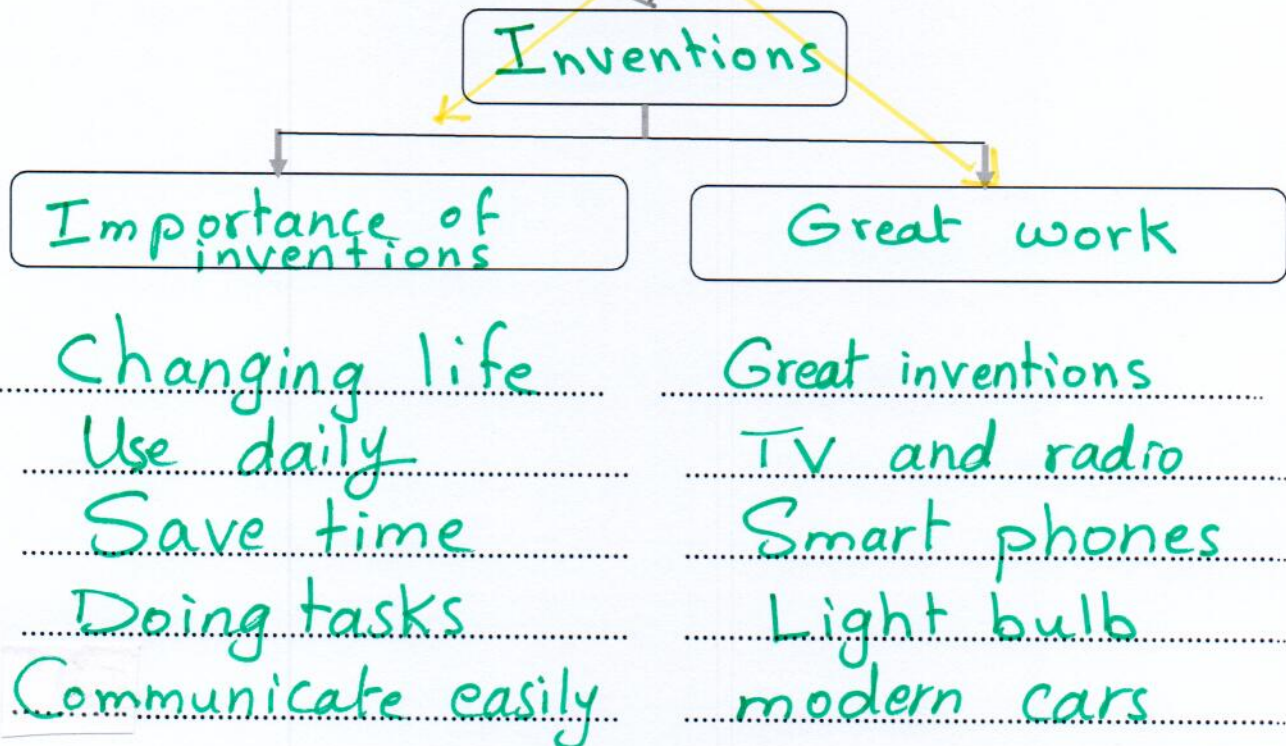 Inventions
Importance of
inventions
Great work
Changing life
Use daily
Save time
Doing tasks
Communicate easily
Great inventions
TV and radio
Smart phones
Light bulb
modern cars